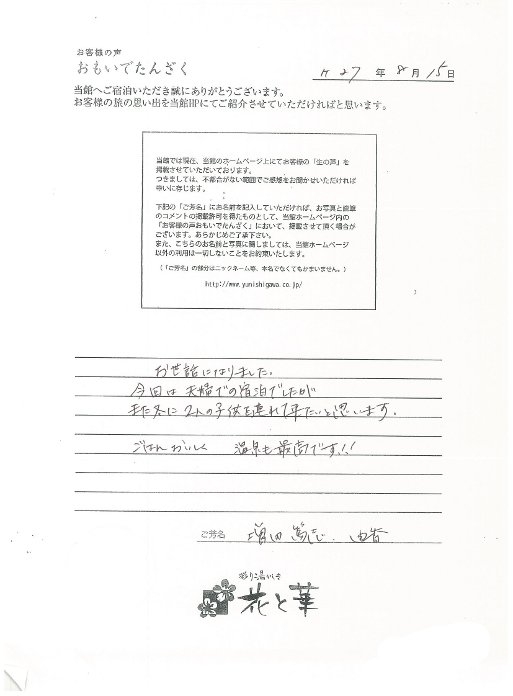 お客様の声
おもいでたんざく
H27年8月15日
当館へご宿泊いただき誠にありがとうございます。
お客様の旅の思い出を当館HPにてご紹介させていただければと思います。
当館では現在、当館のホームページ上にてお客様の「生の声」を
掲載させていただいております。
つきましては、不都合がない範囲でご感想をお聞かせいただければ
幸いに存じます。
下記の「ご芳名」にお名前を記入していただければ、お写真と直筆
のコメントの掲載許可を得たものとして、当館ホームページ内の
「お客様の声おもいでたんざく」において、掲載させて頂く場合が
ございます。あらかじめご了承下さい。
また、こちらのお名前と写真に関しましては、当館ホームページ
以外の利用は一切しないことをお約束いたします。
(「ご芳名」の部分はニックネーム等、本名でなくてもかまいません。)
http://www.yunishigawa.co.jp/
お世話になりました。
今回は夫婦での宿泊でしたが
また冬に2人の子供を連れて来たいと思います。
ごはんおいしく 温泉も最高です!!
ご芳名 増田 篤志・由香
彩り湯かしき
花と華